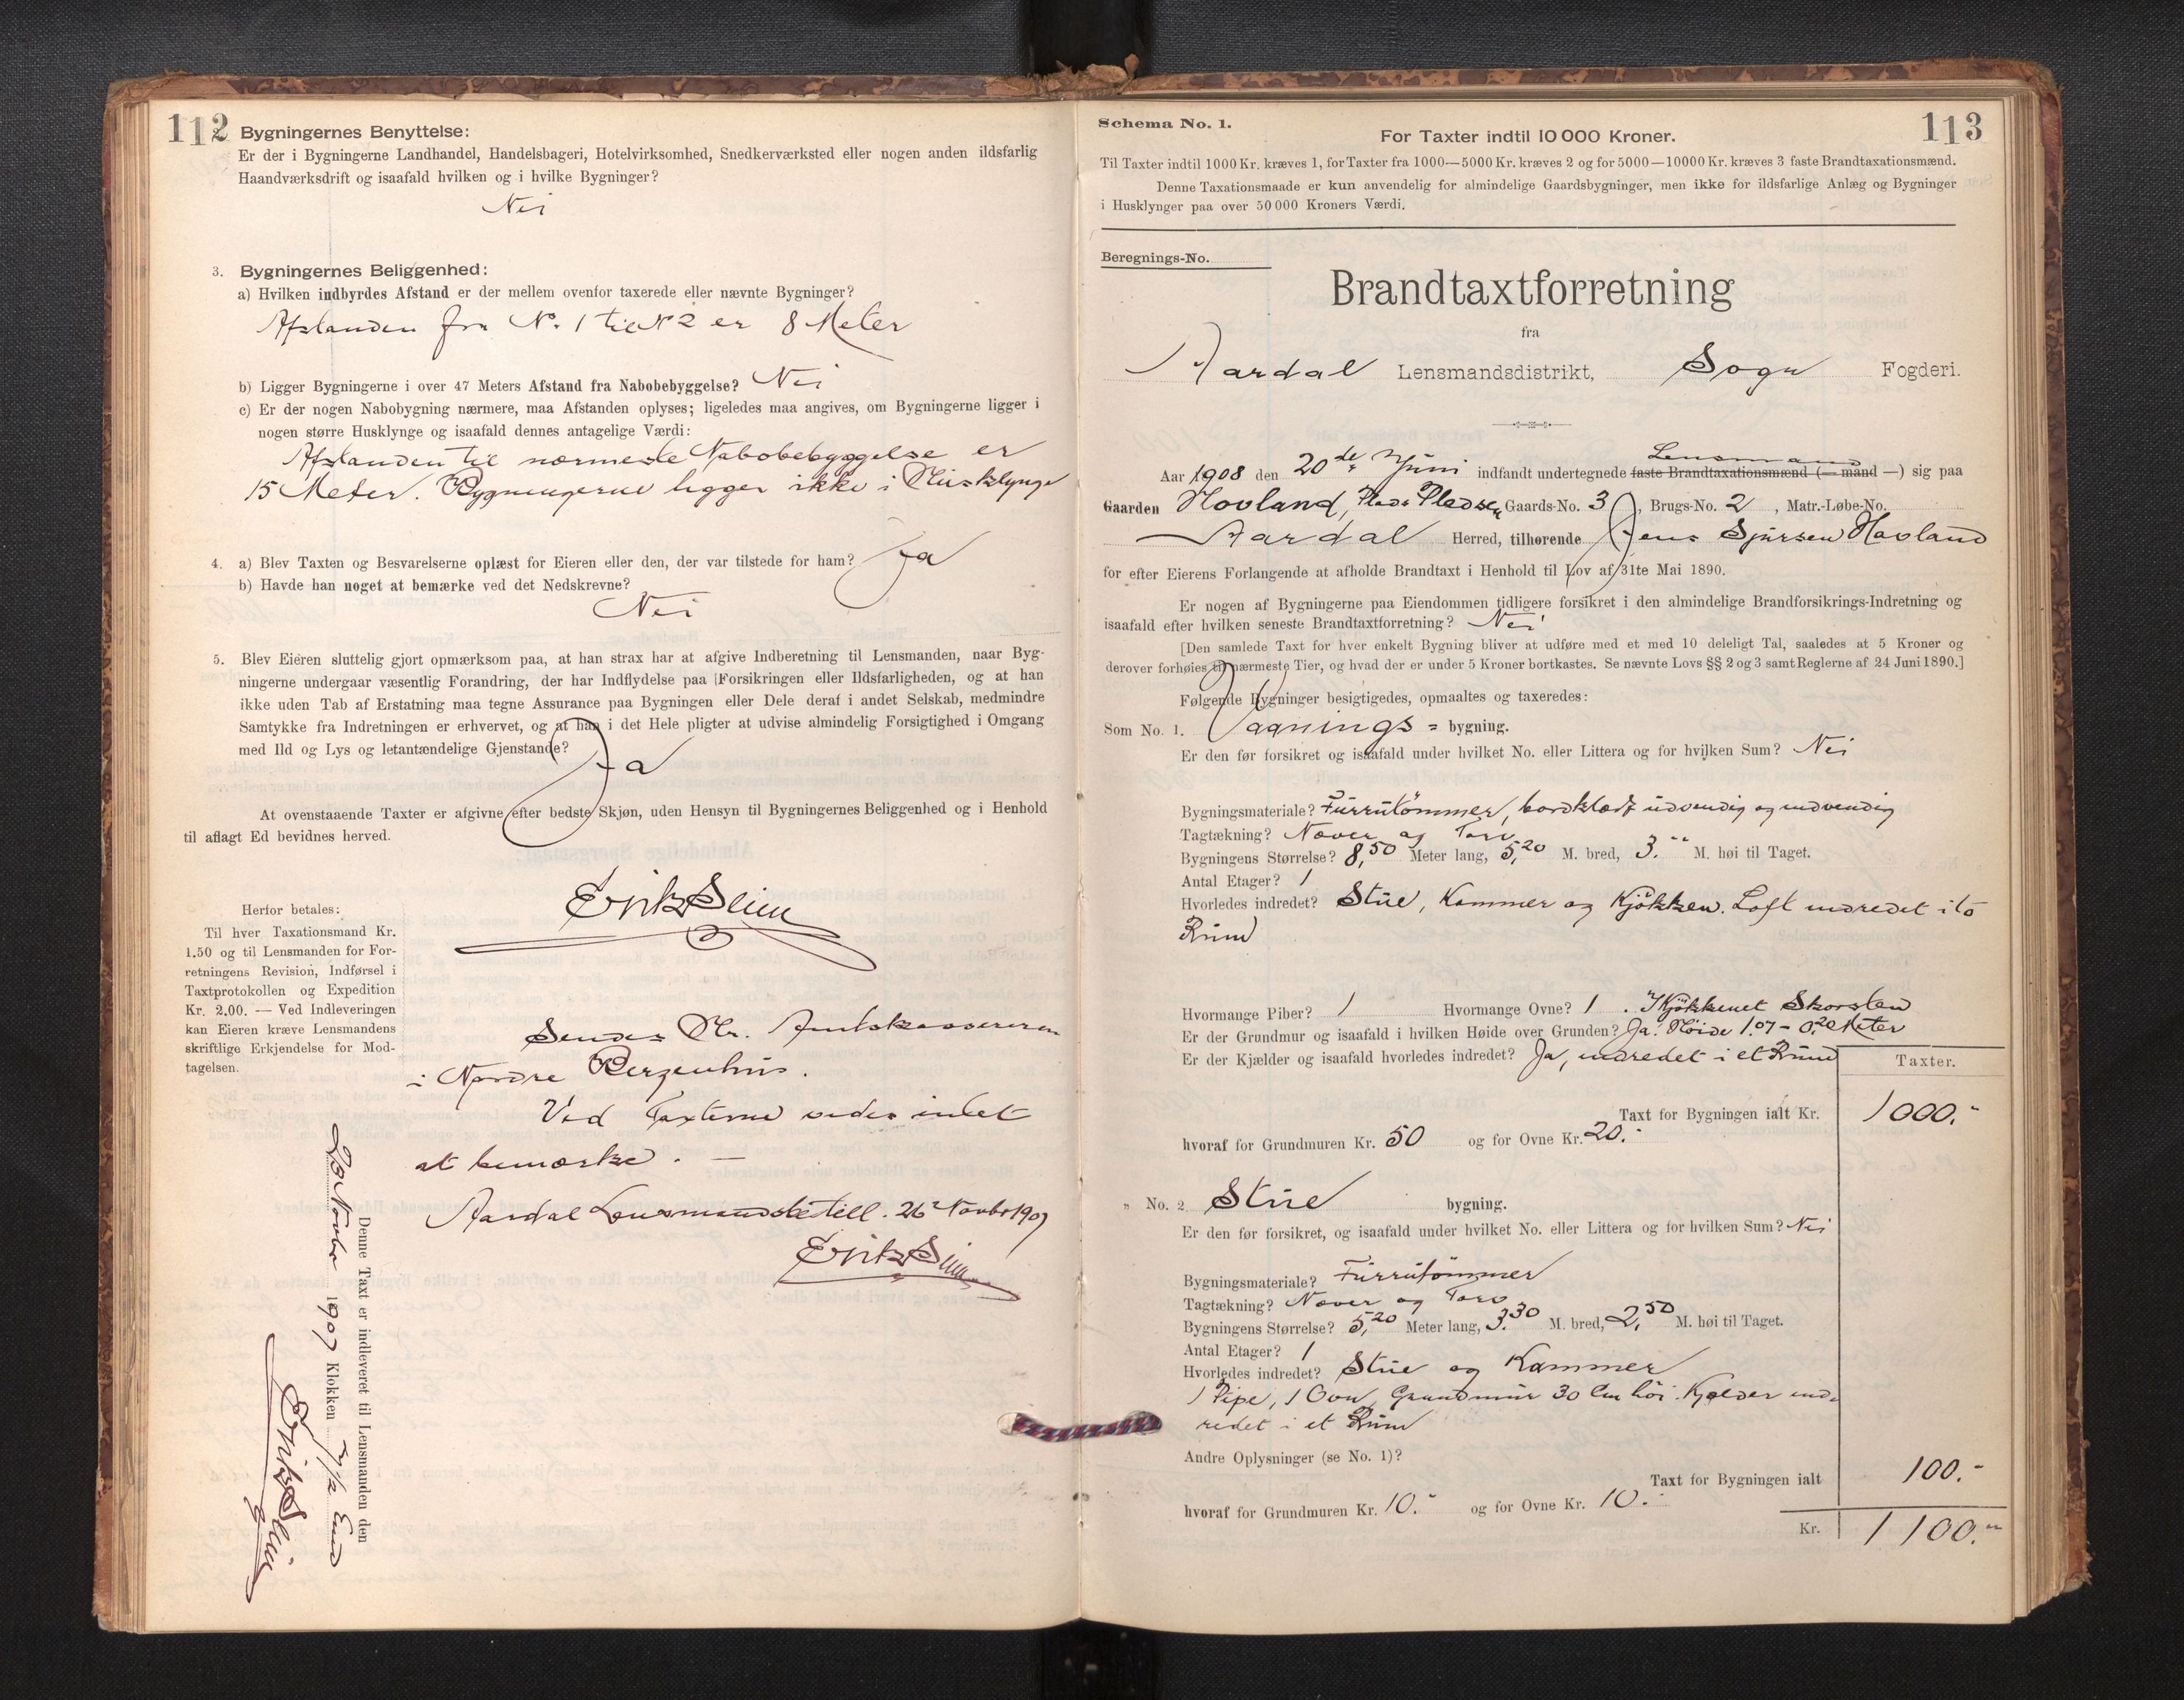 112
Bygningernes Benyttelse:
Er der i Bygningerne Landhandel, Handelsbageri, Hotelvirksomhed, Snedkerværksted eller nogen anden ildsfarlig
Haandværksdrift og isaafald hvilken og i hvilke Bygninger?
Nei
3. Bygningernes Beliggenhed:
a) Hvilken indbyrdes Afstand er der mellem ovenfor taxerede eller nævnte Bygninger?
Afstanden fra No. 1 til N 2 er 8 Meter
b) Ligger Bygningerne i over 47 Meters Afstand fra Nabobebyggelse? Nei
c) Er der nogen Nabobygning nærmere, maa Afstanden oplyses; ligeledes maa angives, om Bygningerne ligger i
nogen større Husklynge og isaafald dennes antagelige Værdi:
Afstanden til nærmeste Nabobebyggelse er
15 Meter. Bygningerne ligger ikke i Husklynge
4. a) Blev Taxten og Besvarelserne oplæst for Eieren eller den, der var tilstede for ham? Ja
b) Havde han noget at bemærke ved det Nedskrevne?
Nei
5. Blev Eieren sluttelig gjort opmærksom paa, at han strax har at afgive Indberetning til Lensmanden, naar Byg-
ningerne undergaar væsentlig Forandring, der har Indflydelse paa Forsikringen eller Ildsfarligheden, og at han
ikke uden Tab af Erstatning maa tegne Assurance paa Bygningen eller Dele deraf i andet Selskab, medmindre
Samtykke fra Indretningen er erhvervet, og at han i det Hele pligter at udvise almindelig Forsigtighed i Omgang
med Ild og Lys og letantændelige Gjenstande?
Ja
At ovenstaaende Taxter er afgivne efter bedste Skjøn, uden Hensyn til Bygningernes Beliggenhed og i Henhold
til aflagt Ed bevidnes herved.
Erik Seim
Herfor betales:
Til hver Taxationsmand Kr.
1.50 og til Lensmanden for For-
retningens Revision, Indførsel i
Taxtprotokollen og Expedition
Kr. 2.00. — Ved Indleveringen
kan Eieren kræve Lensmandens
skriftlige Erkjendelse for Mod-
tagelsen.
Sendes Hr. Amtskassereren
i Nordre Bergenhus.
Ved Taxterne vides intet
at bemærke. —
Aardal Lensmandsbestill. 26 Novbr 1907
Erik Seim
Denne Taxt er indleveret til Lensmanden den
Novbr 1907 Klokken
Erik Seim
Schema No. 1.
For Taxter indtil 10 000 Kroner.
113
Til Taxter indtil 1000 Kr. kræves 1, for Taxter fra 1000—5000 Kr. kræves 2 og for 5000—10000 Kr. kræves 3 faste Brandtaxationsmænd.
Denne Taxationsmaade er kun anvendelig for almindelige Gaardsbygninger, men ikke for ildsfarlige Anlæg og Bygninger
i Husklynger paa over 50 000 Kroners Værdi.
Beregnings-No.
Brandtaxtforretning
fra
Aardal Lensmandsdistrikt, Sogn Fogderi.
Lensmand
Aar 1908 den 20de Juni indfandt undertegnede faste Brandtaxationsmænd (— mand —) sig paa
Gaarden Hovland, Gaards-No. 3, Brugs-No. 2, Matr.-Løbe-No.
Aardal Herred, tilhørende Jens Sjursen Hovland
for efter Eierens Forlangende at afholde Brandtaxt i Henhold til Lov af 31te Mai 1890.
Er nogen af Bygningerne paa Eiendommen tidligere forsikret i den almindelige Brandforsikrings-Indretning og
isaafald efter hvilken seneste Brandtaxtforretning? Nei
[Den samlede Taxt for hver enkelt Bygning bliver at udføre med et med 10 deleligt Tal, saaledes at 5 Kroner og
derover forhøies til nærmeste Tier, og hvad der er under 5 Kroner bortkastes. Se nævnte Lovs §§ 2 og 3 samt Reglerne af 24 Juni 1890.]
Følgende Bygninger besigtigedes, opmaaltes og taxeredes:
Som No. 1. Vaanings= bygning.
Er den før forsikret og isaafald under hvilket No. eller Littera og for hvilken Sum? Nei
Bygningsmateriale? Furrutömmer, bordklædt udvendig og indvendig
Tagtækning? Næver og Torv
Bygningens Størrelse? 8,50 Meter lang, 5,20 M. bred, 3." M. høi til Taget.
Antal Etager? 1
Hvorledes indredet? Stue, Kammer og Kjøkken. Loft indredet i to
Rum
Hvormange Piber? 1 Hvormange Ovne? 1. I Kjøkkenet Skorsten
Er der Grundmur og isaafald i hvilken Høide over Grunden? Ja. Høide 1.07 – 0.20 Meter
Er der Kjælder og isaafald hvorledes indredet? Ja, indredet i et Rum
Taxter.
Taxt for Bygningen ialt Kr. 1000.-
hvoraf for Grundmuren Kr. 50 og for Ovne Kr. 20.-
" No. 2 Stue bygning.
Er den før forsikret, og isaafald under hvilket No. eller Littera og for hvilken Sum? Nei
Bygningsmateriale? Furrutömmer
Tagtækning? Næver og Torv
Bygningens Størrelse? 5,20 Meter lang, 3.30 M. bred, 2,50 M. høi til Taget.
Antal Etager? 1
Hvorledes indredet? Stue og Kammer
1 Pipe, 1 Ovn, Grundmur 30 Cm høi. Kjelder ind-
redet i et Rum
Andre Oplysninger (se No. 1)?
Taxt for Bygningen ialt 100.-
hvoraf for Grundmuren Kr. 10.- og for Ovne Kr. 10.-
Kr. 1100.-